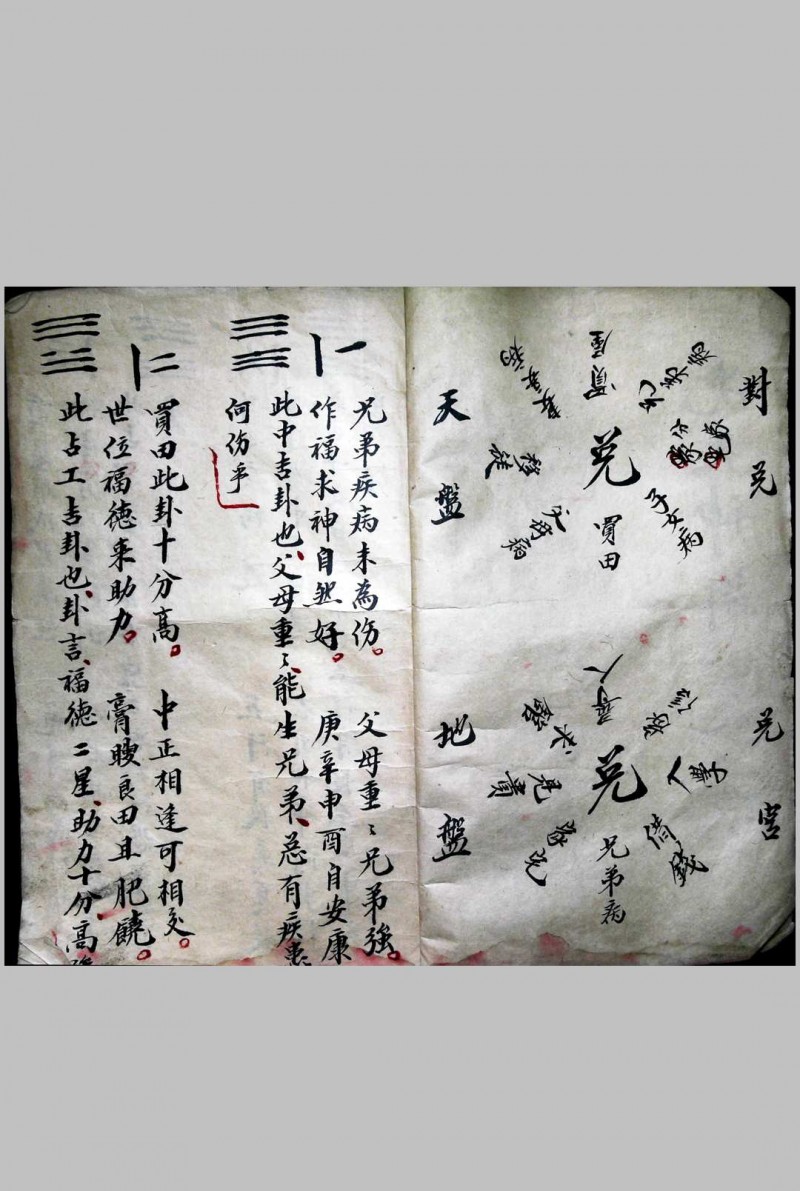 對兌
兌宮
天盤
兌
買屋
分家
子女病
買田
父母病
移徙
地盤
兌
尋人
入學
借錢
兄弟病
見貴
求醫
一
兄弟疾病未為伤。 父母重〻兄弟強。
作福求神自然好。 庚辛申酉自安康
此中吉卦也、父母重〻、能生兄弟、总有疾患
何伤乎
二
買田此卦十分高。 中正相逢可相交。
世位福德来助力。 膏腴良田且肥饒。
此占工吉卦也、卦言、福德二星、助力十分、高